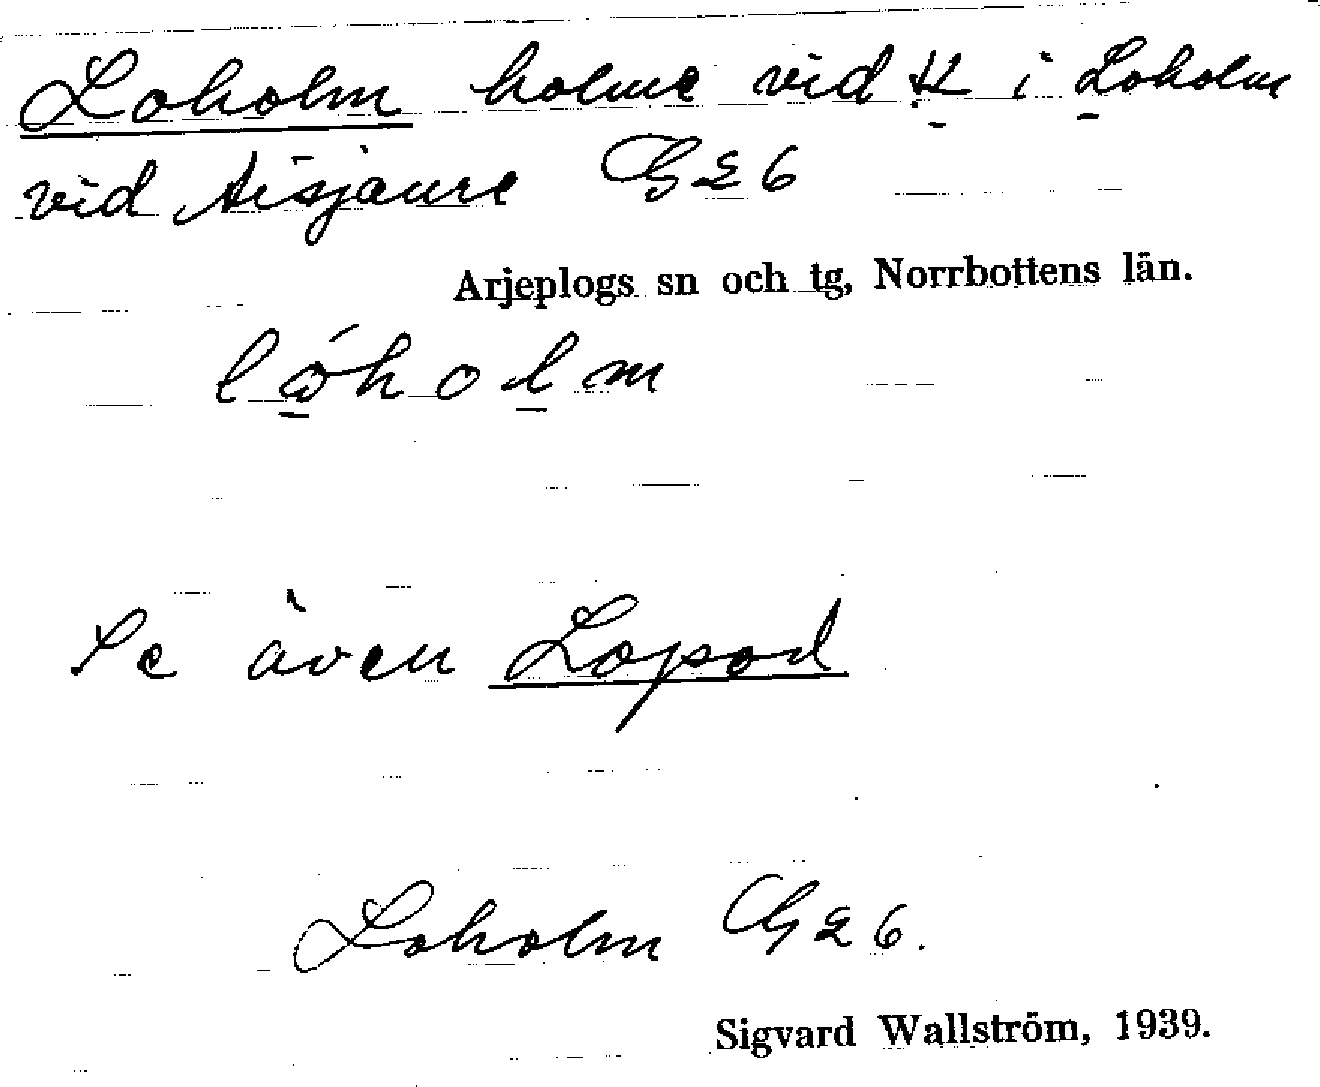 Loholm holme vid H i Loholm
vid Aisjaure G26
Arjeplogs sn och tg, Norrbottens län.
lóholm
Se även Lopod
Loholm G26.
Sigvard Wallström, 1939.